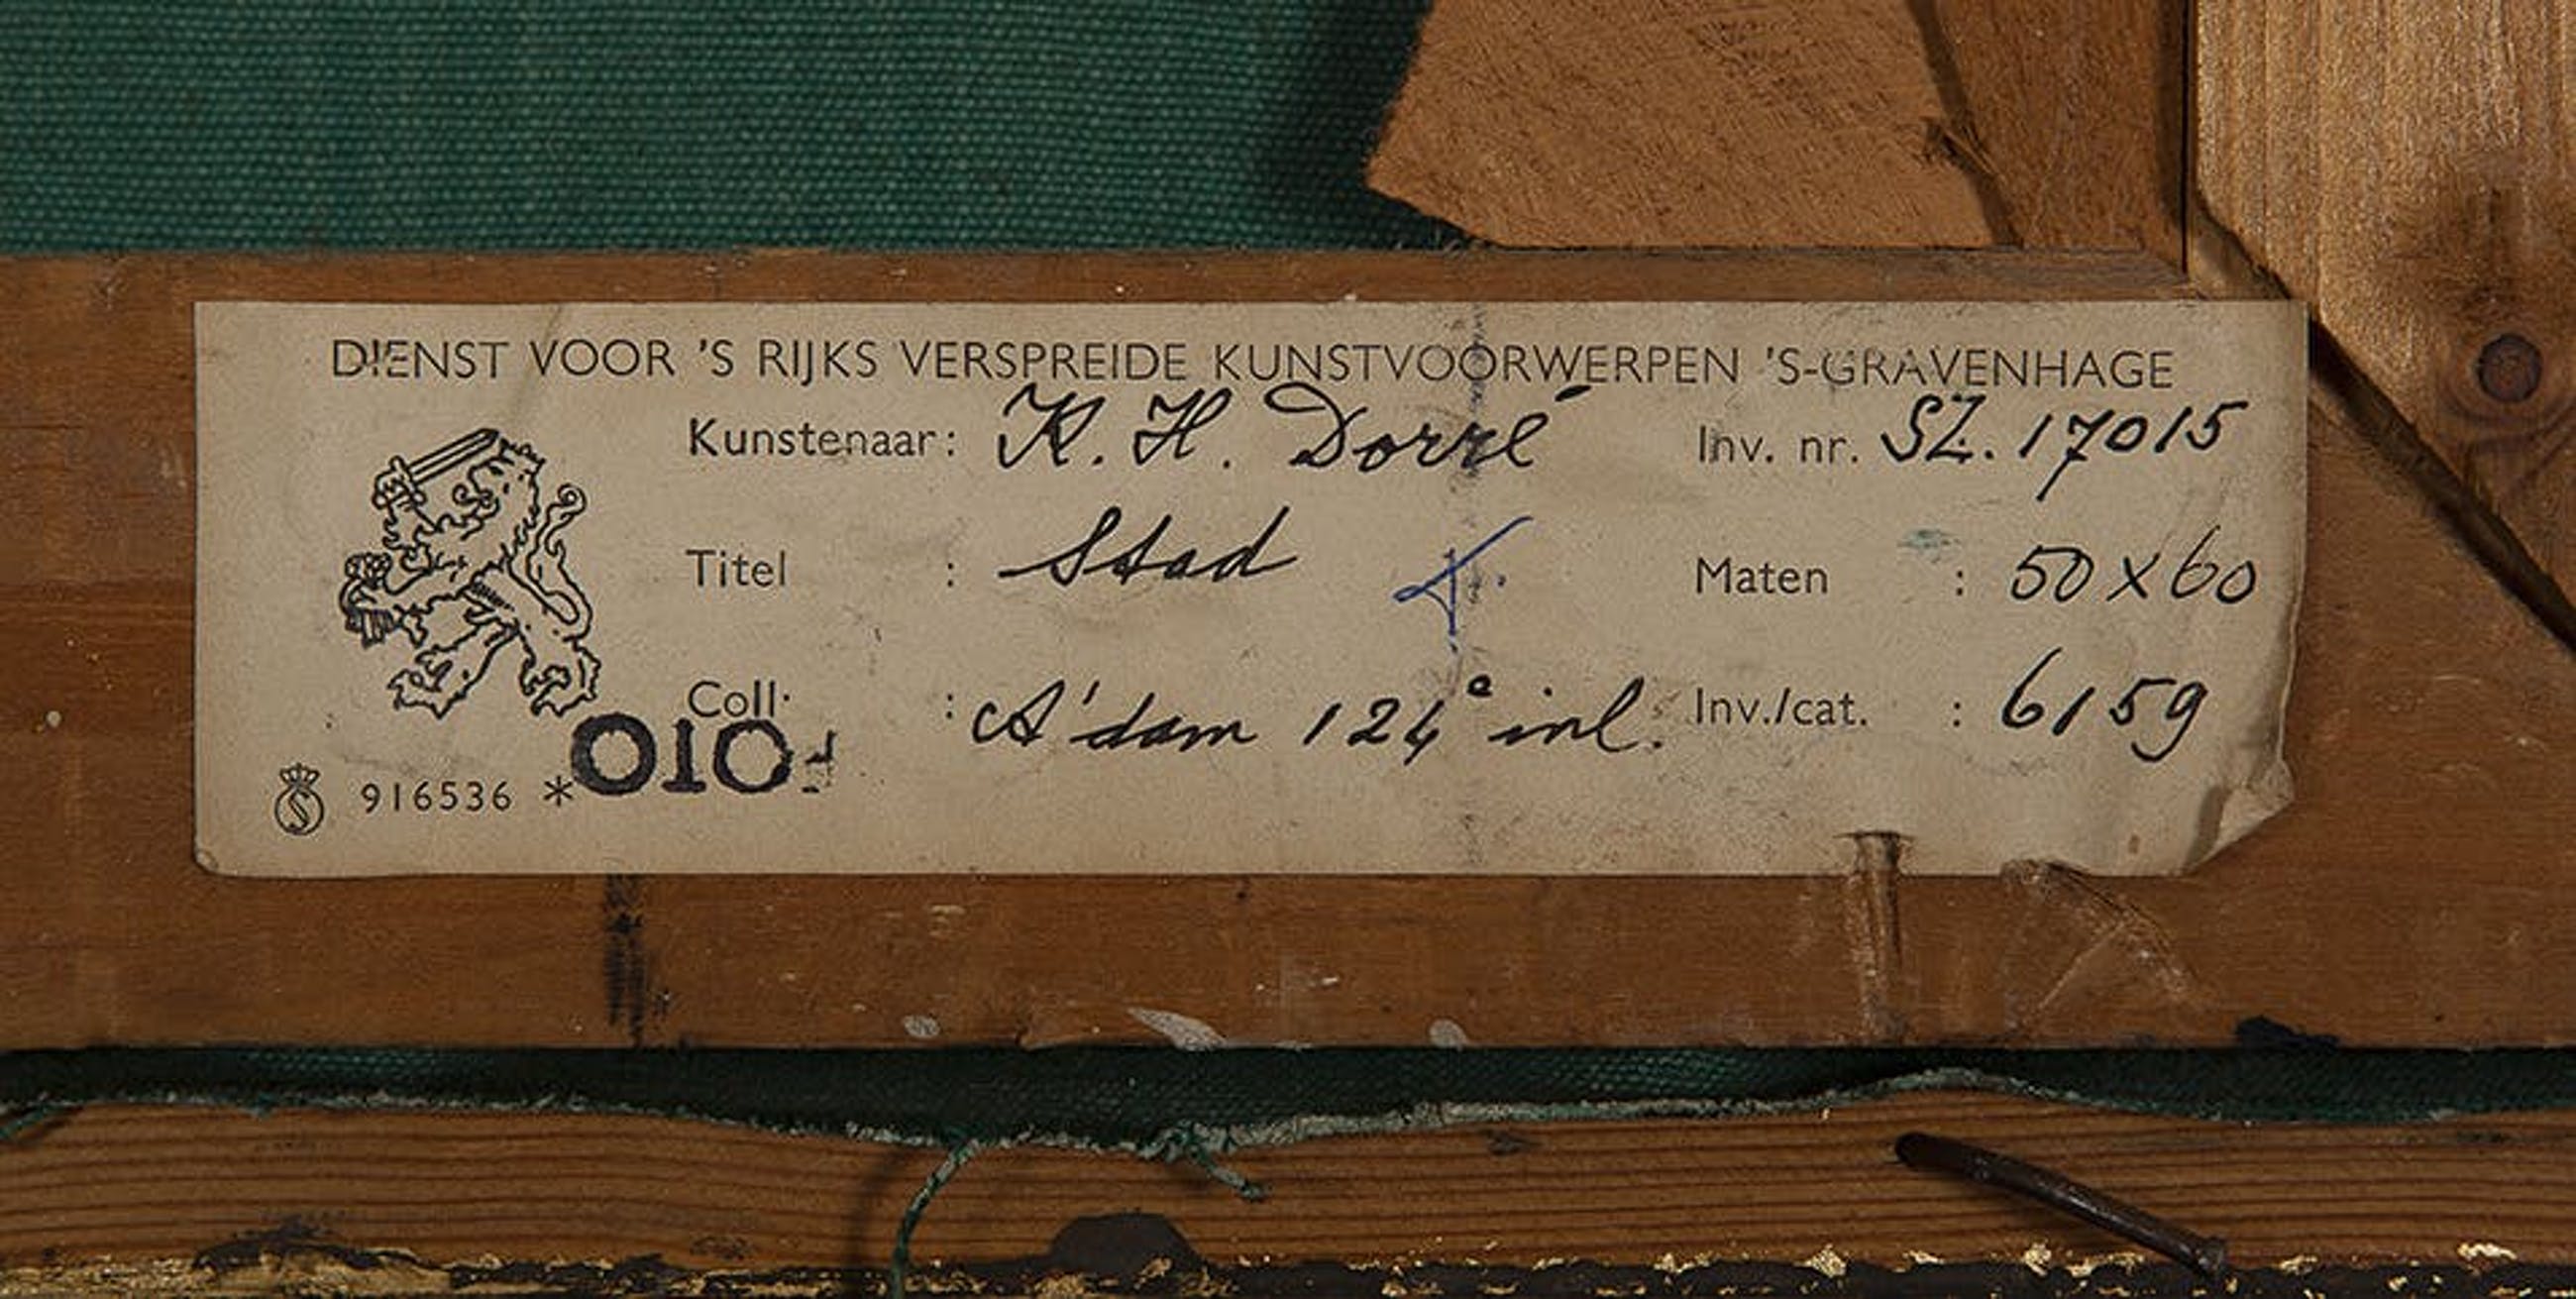 DIENST VOOR 'S RIJKS VERSPREIDE KUNSTVOORWERPEN 'S-GRAVENHAGE
Kunstenaar: K. H. Dorré Inv. nr. SZ. 17015
Titel : Stad Maten : 50 x 60
Coll. : A'dam 124e inl. Inv./cat. : 6159
010
S 916536 *